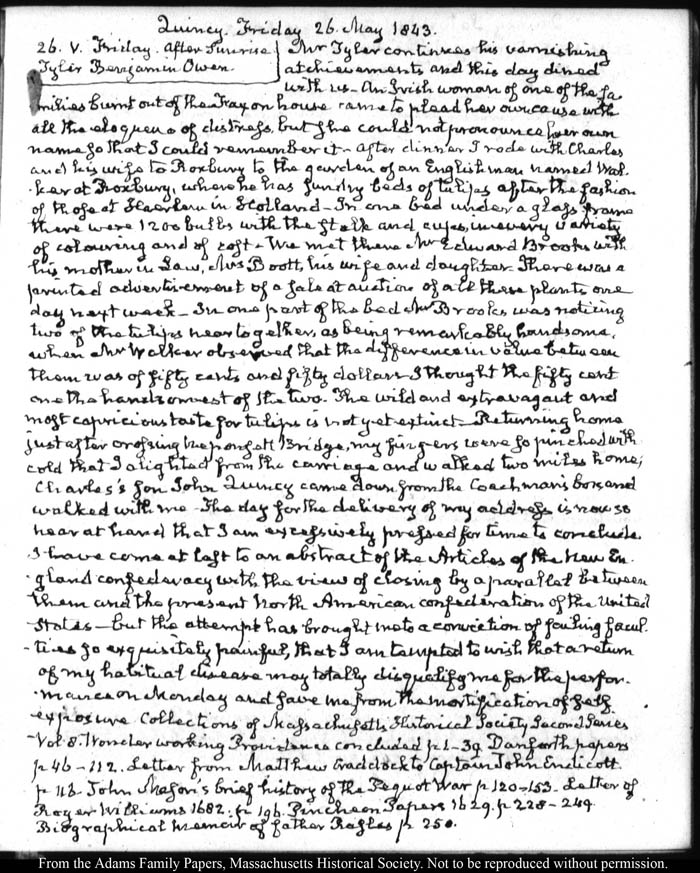 Quincy. Friday 26. May 1843.
26. V. Friday. After Sunrise
Tyler Benjamin Owen.
Mr Tyler continues his varnishing
atchievements and this day dined
with us. An Irish woman of one of the fa
milies burnt out of the Saxon house came to plead her own cause with
all the eloquence of distress, but she could not pronounce her own
name so that I could remember it. After dinner I rode with Charles
and his wife to Roxbury to the garden of an Englishman named Wal-
ker at Roxbury, where he has sundry beds of tulips after the fashion
of those at Haerlem in Holland. In one bed under a glass frame
there were 1200 bulbs with the stalk and cups, in every variety
of colouring and of cost. We met there Mr Edward Brooks with
his mother in Law, Mrs Boott, his wife and daughter. There was a
printed advertisement of a sale at auction of all these plants one
day next week. In one part of the bed Mr Brooks was noticing
two of the tulips near together, as being remarkably handsome,
when Mr Walker observed that the difference in value between
them was of fifty cents and fifty dollars. I thought the fifty cent
one the handsomest of the two. The wild and extravagant and
most capricious taste for tulips is not yet extinct. Returning home
just after crossing Neponsett Bridge, my fingers were so pinched with
cold that I alighted from the carriage and walked two miles home;
Charles's son John Quincy came down from the Coachman's box and
walked with me. The day for the delivery of my address is now so
near at hand that I am excessively pressed for time to conclude.
I have come at last to an abstract of the Articles of the New En-
gland confederacy with the view of closing by a parallel between
them and the present North American confederation of the United
States—but the attempt has brought me to a conviction of failing facul-
ties so exquisitely painful, that I am tempted to wish that a return
of my habitual disease may totally disqualify me for the perfor-
mance on Monday and save me from the mortification of self
exposure. Collections of Massachusetts Historical Society Second Series
Vol 8. Wonder working Providence concluded p 1-39. Danforth papers
p 46-112. Letter from Matthew Craddock to Captain John Endicott
p 116. John Mason's brief history of the Pequot War p 120-153. Letter of
Roger Williams 1682. p 196. Pincheon Papers 1629. p 228-249.
Biographical Memoir of father Rasles p 250.
From the Adams Family Papers, Massachusetts Historical Society. Not to be reproduced without permission.